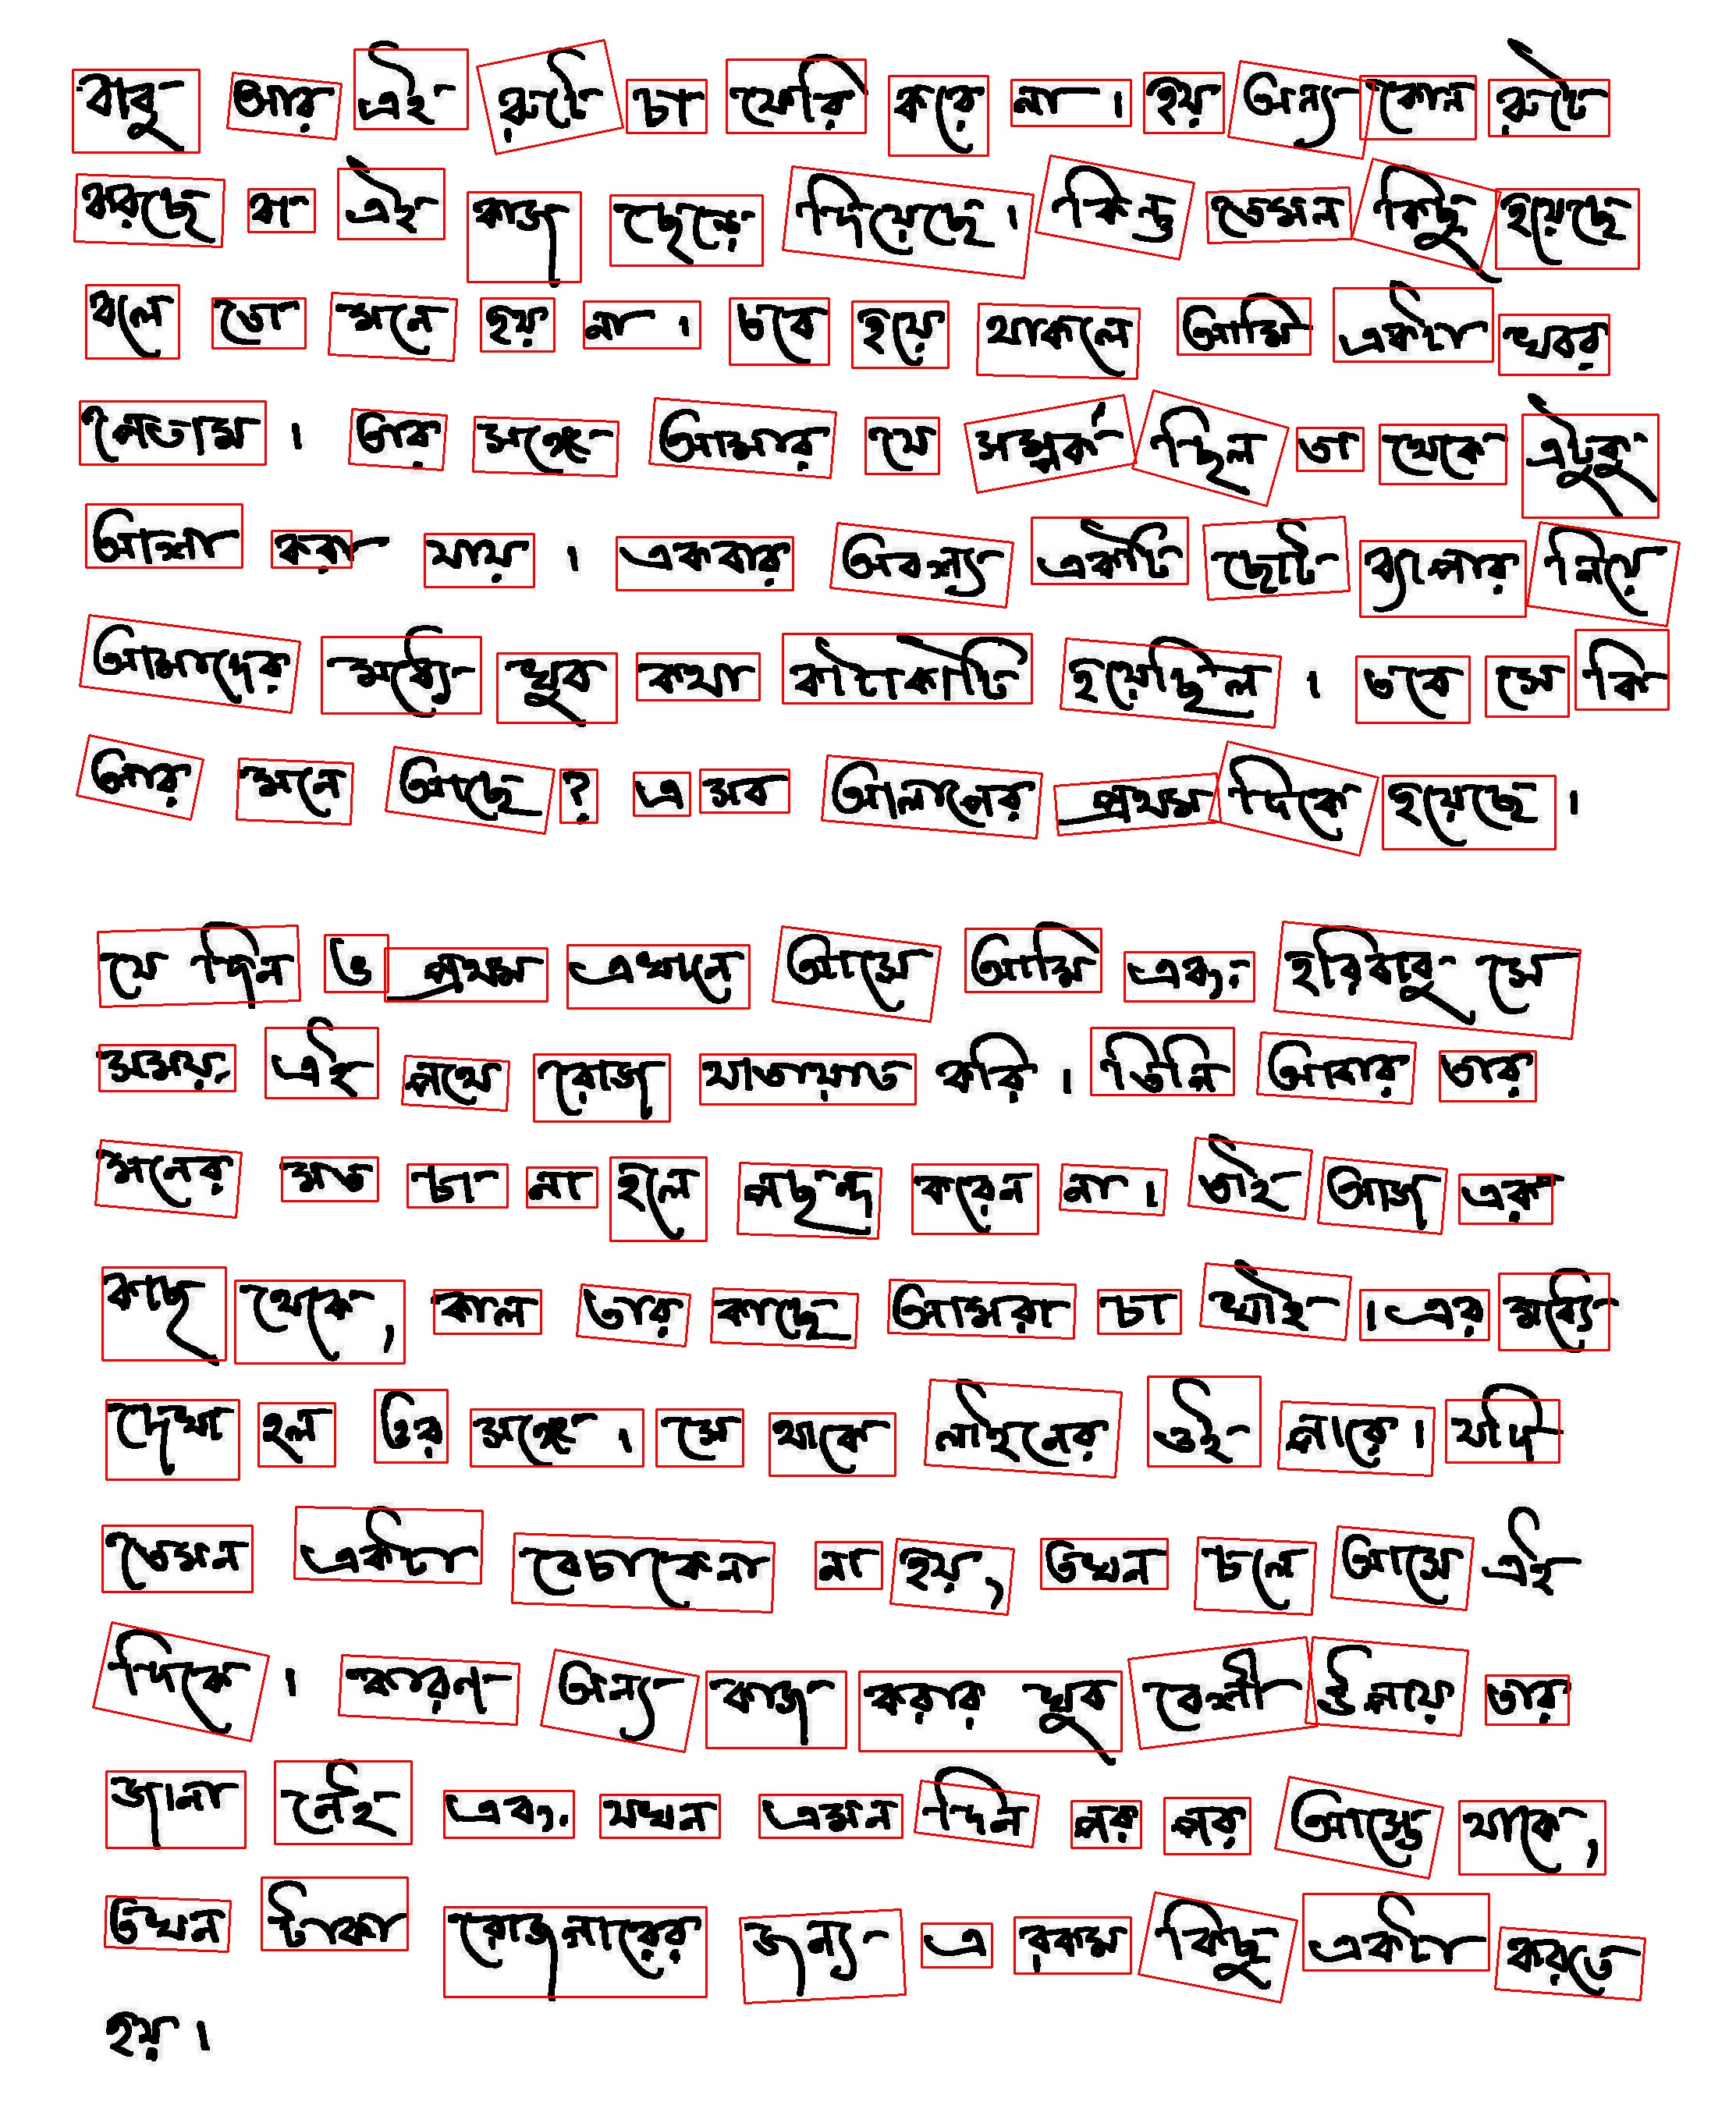 বাবু আর এই রুটে চা ফেরি করে না । হয় অন্য কোন রুটে
ধরছে বা এই কাজ ছেড়ে দিয়েছে । কিন্তু তেমন কিছু হয়েছে
বলে তো মনে হয় না । তবে হয়ে থাকলে আমি একটা খবর
পেতাম । তার সঙ্গে আমার যে সম্পর্ক ছিল তা থেকে এটুকু
আশা করা যায় । একবার অবশ্য একটি ছোট ব্যাপার নিয়ে
আমাদের মধ্যে খুব কথা কাটাকাটি হয়েছিল । তবে সে কি
আর মনে আছে ? এ সব আলাপের প্রথম দিকে হয়েছে ।
যে দিন ও প্রথম এখানে আসে আমি এবং হরিবাবু সে
সময় এই পথে রোজ যাতায়াত করি । তিনি আবার তার
মনের মত চা না হলে পছন্দ করেন না । তাই আজ এক
কাছ থেকে, কাল তার কাছে আমরা চা খাই । এর মধ্যি
দেখা হল ওর সঙ্গে । সে থাকে লাইনের ওই পারে । যদি
তেমন একটা বেচাকেনা না হয়, তখন চলে আসে এই
দিকে । কারণ অন্য কাজ করার খুব বেশী উপায় তার
জানা নেই এবং যখন এমন দিন পর পর আস্তে থাকে,
তখন টাকা রোজগারের জন্য এ রকম কিছু একটা করতে
হয় ।